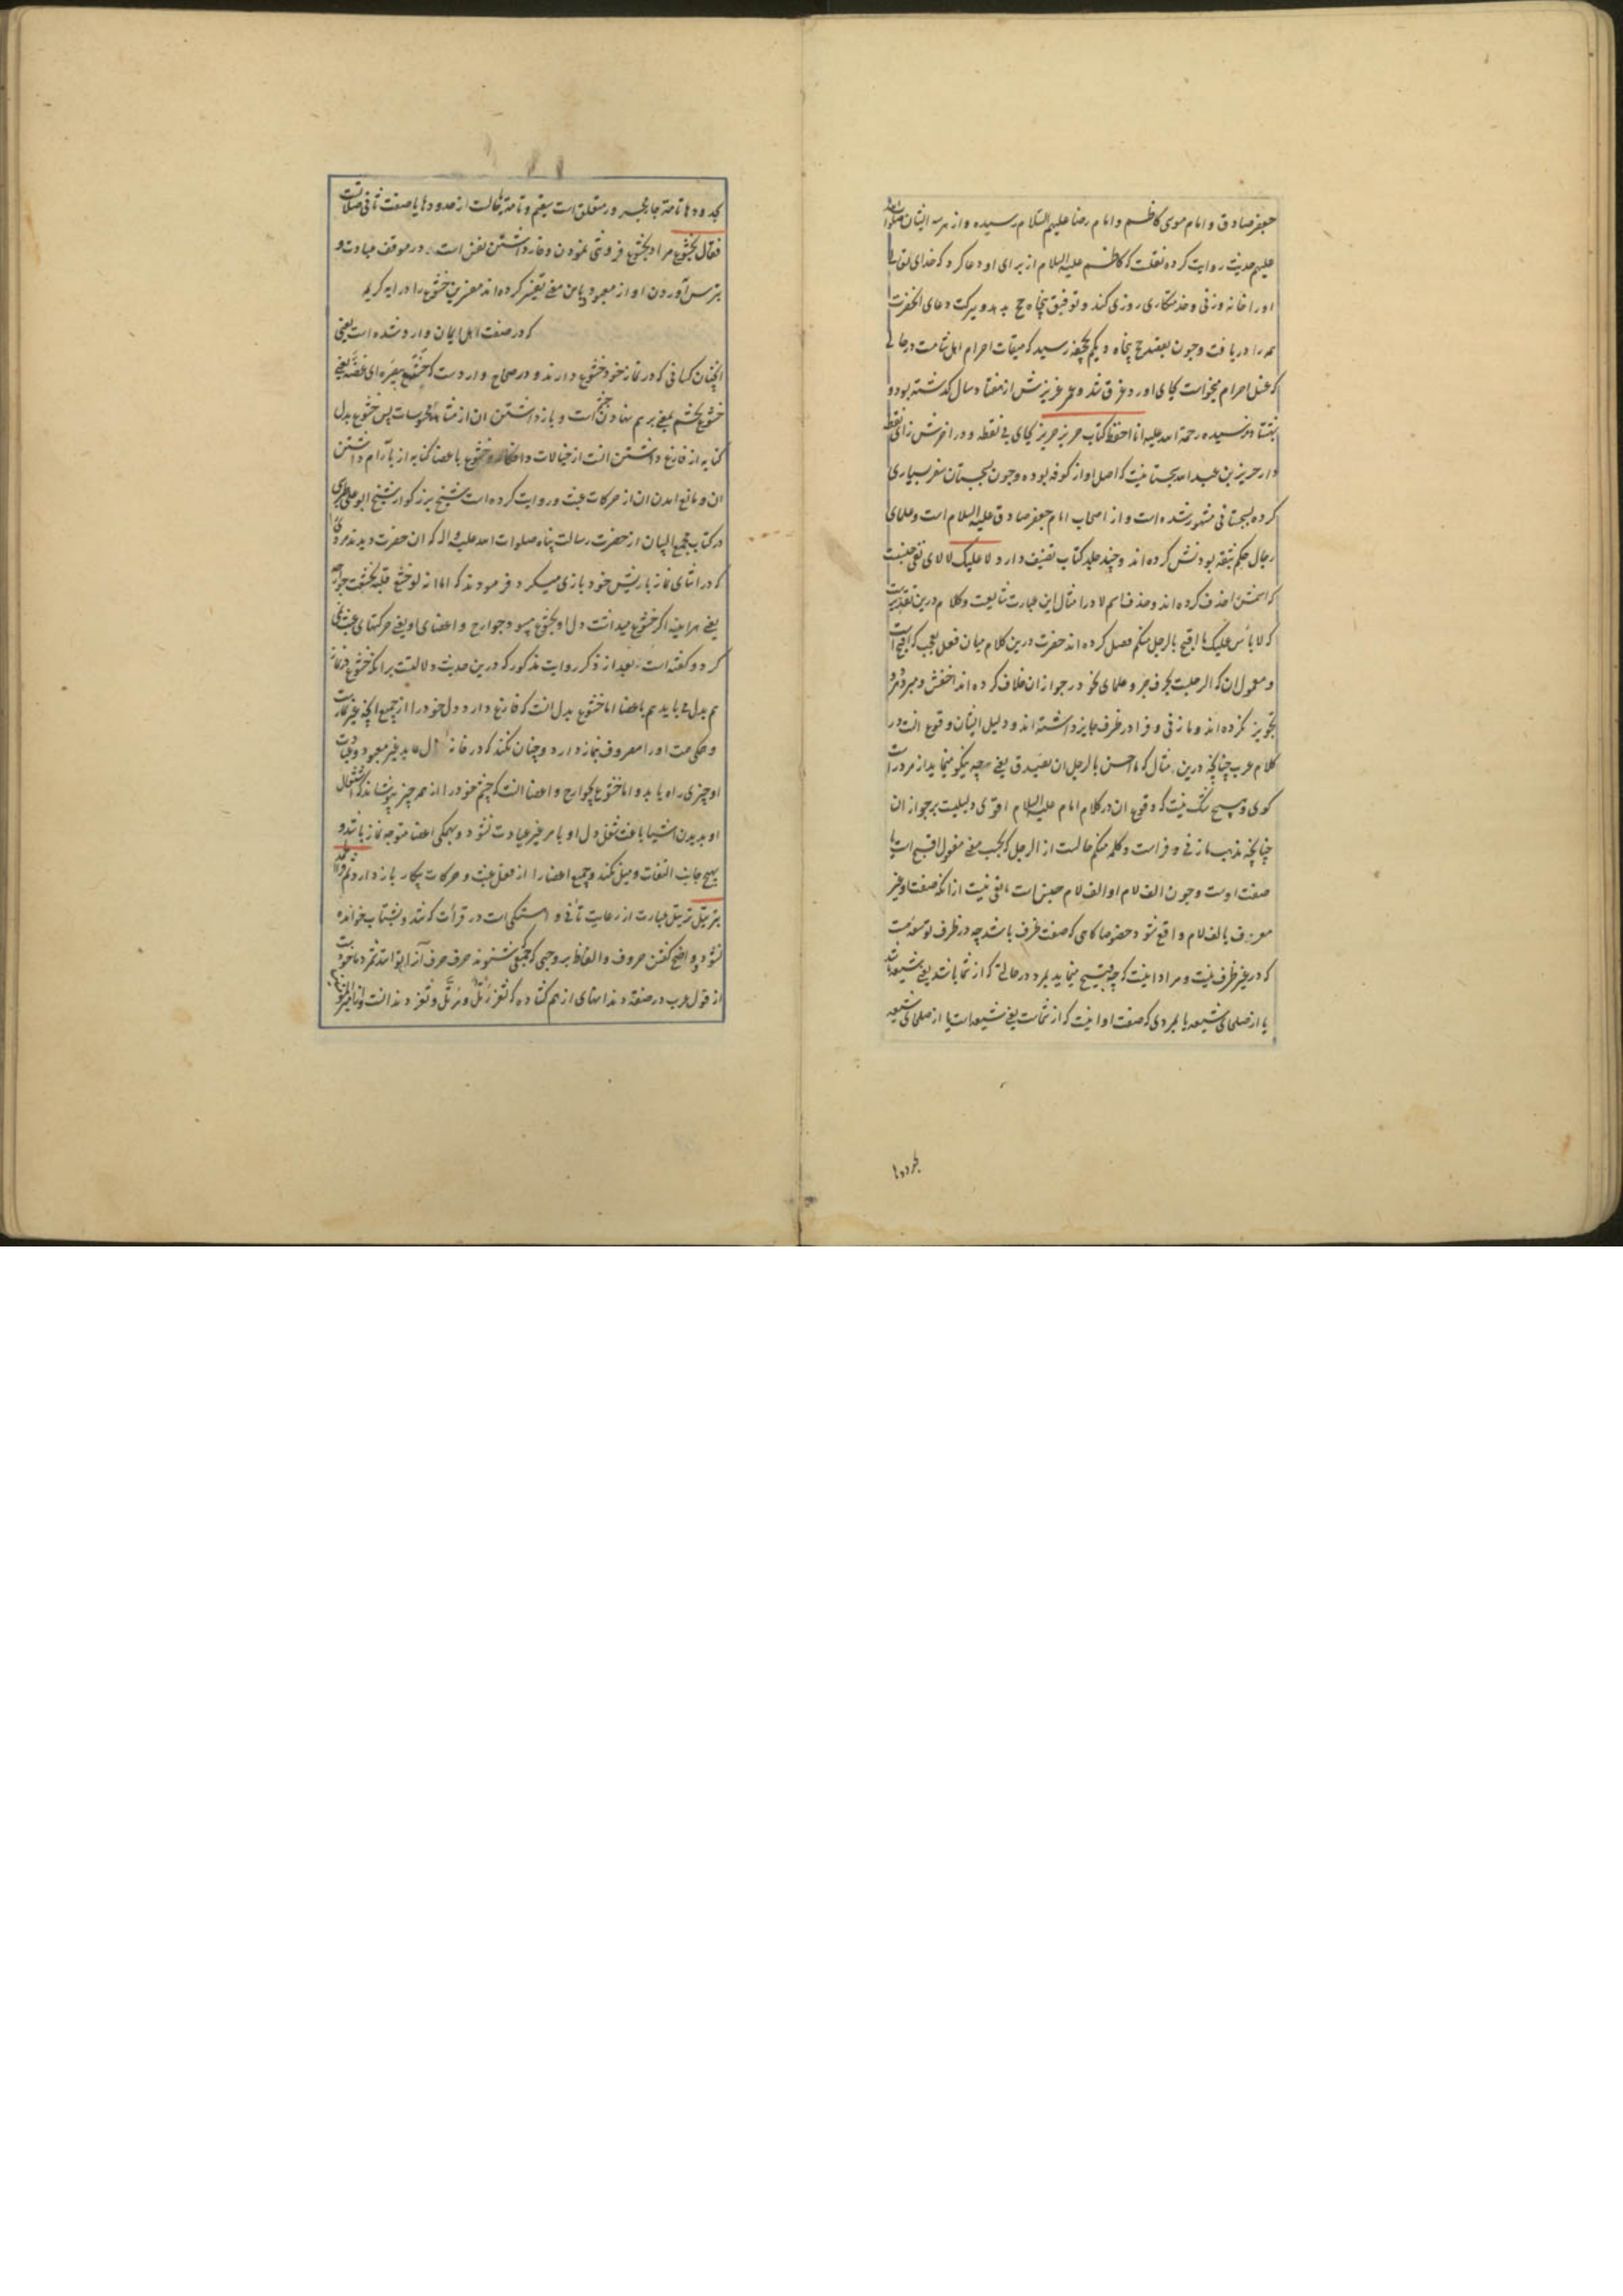 جعفر صادق و امام موسی کاظم و امام رضا علیهم السلام رسیده و از هر سه ایشان صلوات الله
علیهم حدیث روایت کرده نقلست که کاظم علیه السلام از برای او دعا کرد که خدای تعالی
او را خانه و زنی و خدمتکاری روزی کند و توفیق پنجاه حج بدهد و ببرکت دعای انحضرت
همه را دریافت و چون بقصد حج پنجاه و یکم بجحفه رسید که میقات احرام اهل شامست در حالی
که غسل احرام میخواست بجای اورد غرق شد و عمر عزیزش از هفتاد سال کذشته بود و
بهشتاد نرسیده رحمة الله علیه انا احفظ کتاب حریز حریز بحای بی نقطه و در اخرش زای نقطه
دار حریز بن عبد الله سجستانیست که اصل او از کوفه بوده و چون بسجستان سفر بسیاری
کرده بسجستانی مشهور شده است و از اصحاب امام جعفر صادق علیه السلام است و علمای
رجال حکم بثقه بودنش کرده اند و چند جلد کتاب تصنیف دارد لا علیک لا لای نفی جنسست
که اسمش را حذف کرده اند و حذف اسم لا در امثال این عبارت شایعست و کلام درین تقدیرست
که لا باس علیک ما اقبح بالرجل منکم فصل کرده اند حضرت درین کلام میان فعل تعجب که اقبح است
و معمول ان که الرجلست بحرف جر و علمای نحو در جواز ان خلاف کرده اند اخفش و مبرد مرد
تجویز نکرده اند و مازنی و فرا در ظرف جایز داشته اند و دلیل ایشان وقوع انست در
کلام عرب چنانچه درین مثال که ما احسن بالرجل ان یصدق یعنی چه نیکو مینماید از مرد راست
کوی و هیچ شک نیست که وقوع ان در کلام امام علیه السلام اقوی دلیلیست بر جواز ان
چنانچه مذهب مازنی و فراست و کلمه منکم حالست از الرجل که بحسب معنی مفعول اقبح است یا
صفت اوست و چون الف لام او الف لام جنس است مانعی نیست از انکه صفت او غیر
معرف بالف لام واقع شود خصوصا کاهی که صفت ظرف باشد چه در ظرف توسعه هست
که در غیر ظرف نیست و مراد اینست که چه قبیح مینماید بمرد در حالتی که از شما باشد یعنی شیعه باشد
یا از صلحای شیعه یا بمردی که صفت او اینست که از شماست یعنی شیعه است یا از صلحای شیعه
بحدودها
بحدودها تامة جار مجرور متعلق است بیقیم و تامة حالست از حدودها یا صفت ثانی صلاتست
فقال بخشوع مراد بخشوع فروتنی نمودن و خار داشتن نفس است در موقف عبادت و
بترس آوردن او از معبود و باین معنی تفسیر کرده اند مفسرین خشوع را در ایه کریمه
که در صفت اهل ایمان وارد شده است یعنی
انچنان کسانی که در نماز خود خشوع دارند و در صحاح واردست که خشع ببصره ای غضه یعنی
خشوع بچشم یعنی بر هم نهادن چشم است و باز داشتن ان از مشاهده محسوسات پس خشوع بدل
کنایه از فارغ داشتن انست از خیالات و افکار و خشوع باعضا کنایه از بآرام داشتن
ان و مانع امدن ان از حرکات عبث و روایت کرده است شیخ بزرکوار شیخ ابو علی طبرسی
در کتاب مجمع البیان از حضرت رسالت پناه صلوات الله علیه و اله که ان حضرت دیدند مردی را
که در اثنای نماز با ریش خود بازی میکرد فرمودند که اما انه لو خشع قلبه لخشعت جوارحه
یعنی هراینه اکر خشوع میداشت دل او بخشوع میبود جوارح و اعضای او یعنی حرکتهای عبث نمی
کرد و کفته است بعد از ذکر روایت مذکور که درین حدیث دلالتست بر انکه خشوع در نماز
هم بدل می باید هم باعضا اما خشوع بدل انست که فارغ دارد دل خود را از جمیع انچه غیر نمازست
و همکی همت او را مصروف نماز دارد و چنان نکند که در خانه دل عابد غیر معبود و عبادت
او چیزی راه یابد و اما خشوع بجوارح و اعضا انست که چشم خود را از هر چیز بپوشاند که اشتغال
او بدیدن اشیا باعث شغل دل او بامر غیر عبادت نشود و بهمکی اعضا متوجه نماز باشد و
بهیچ جانب التفات و میل نکند و جمیع اعضا را از فعل عبث و حرکات بیکار باز دارد
بترتیل ترتیل عبارت از رعایت تأنی و اهستکی است در قرأت که تند و بشتاب خوانده
نشود و واضح کفتن حروف و الفاظ بر وجهی که جمعی شنونده حرف حرف آنرا توانند شمرد ماخوذست
از قول عرب در صفت دندانهای از هم کشاده که ثغر رتل و مرتل و ثغر دندانست